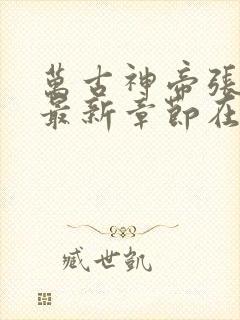 萬古神帝張
最新章節在
臧世凱